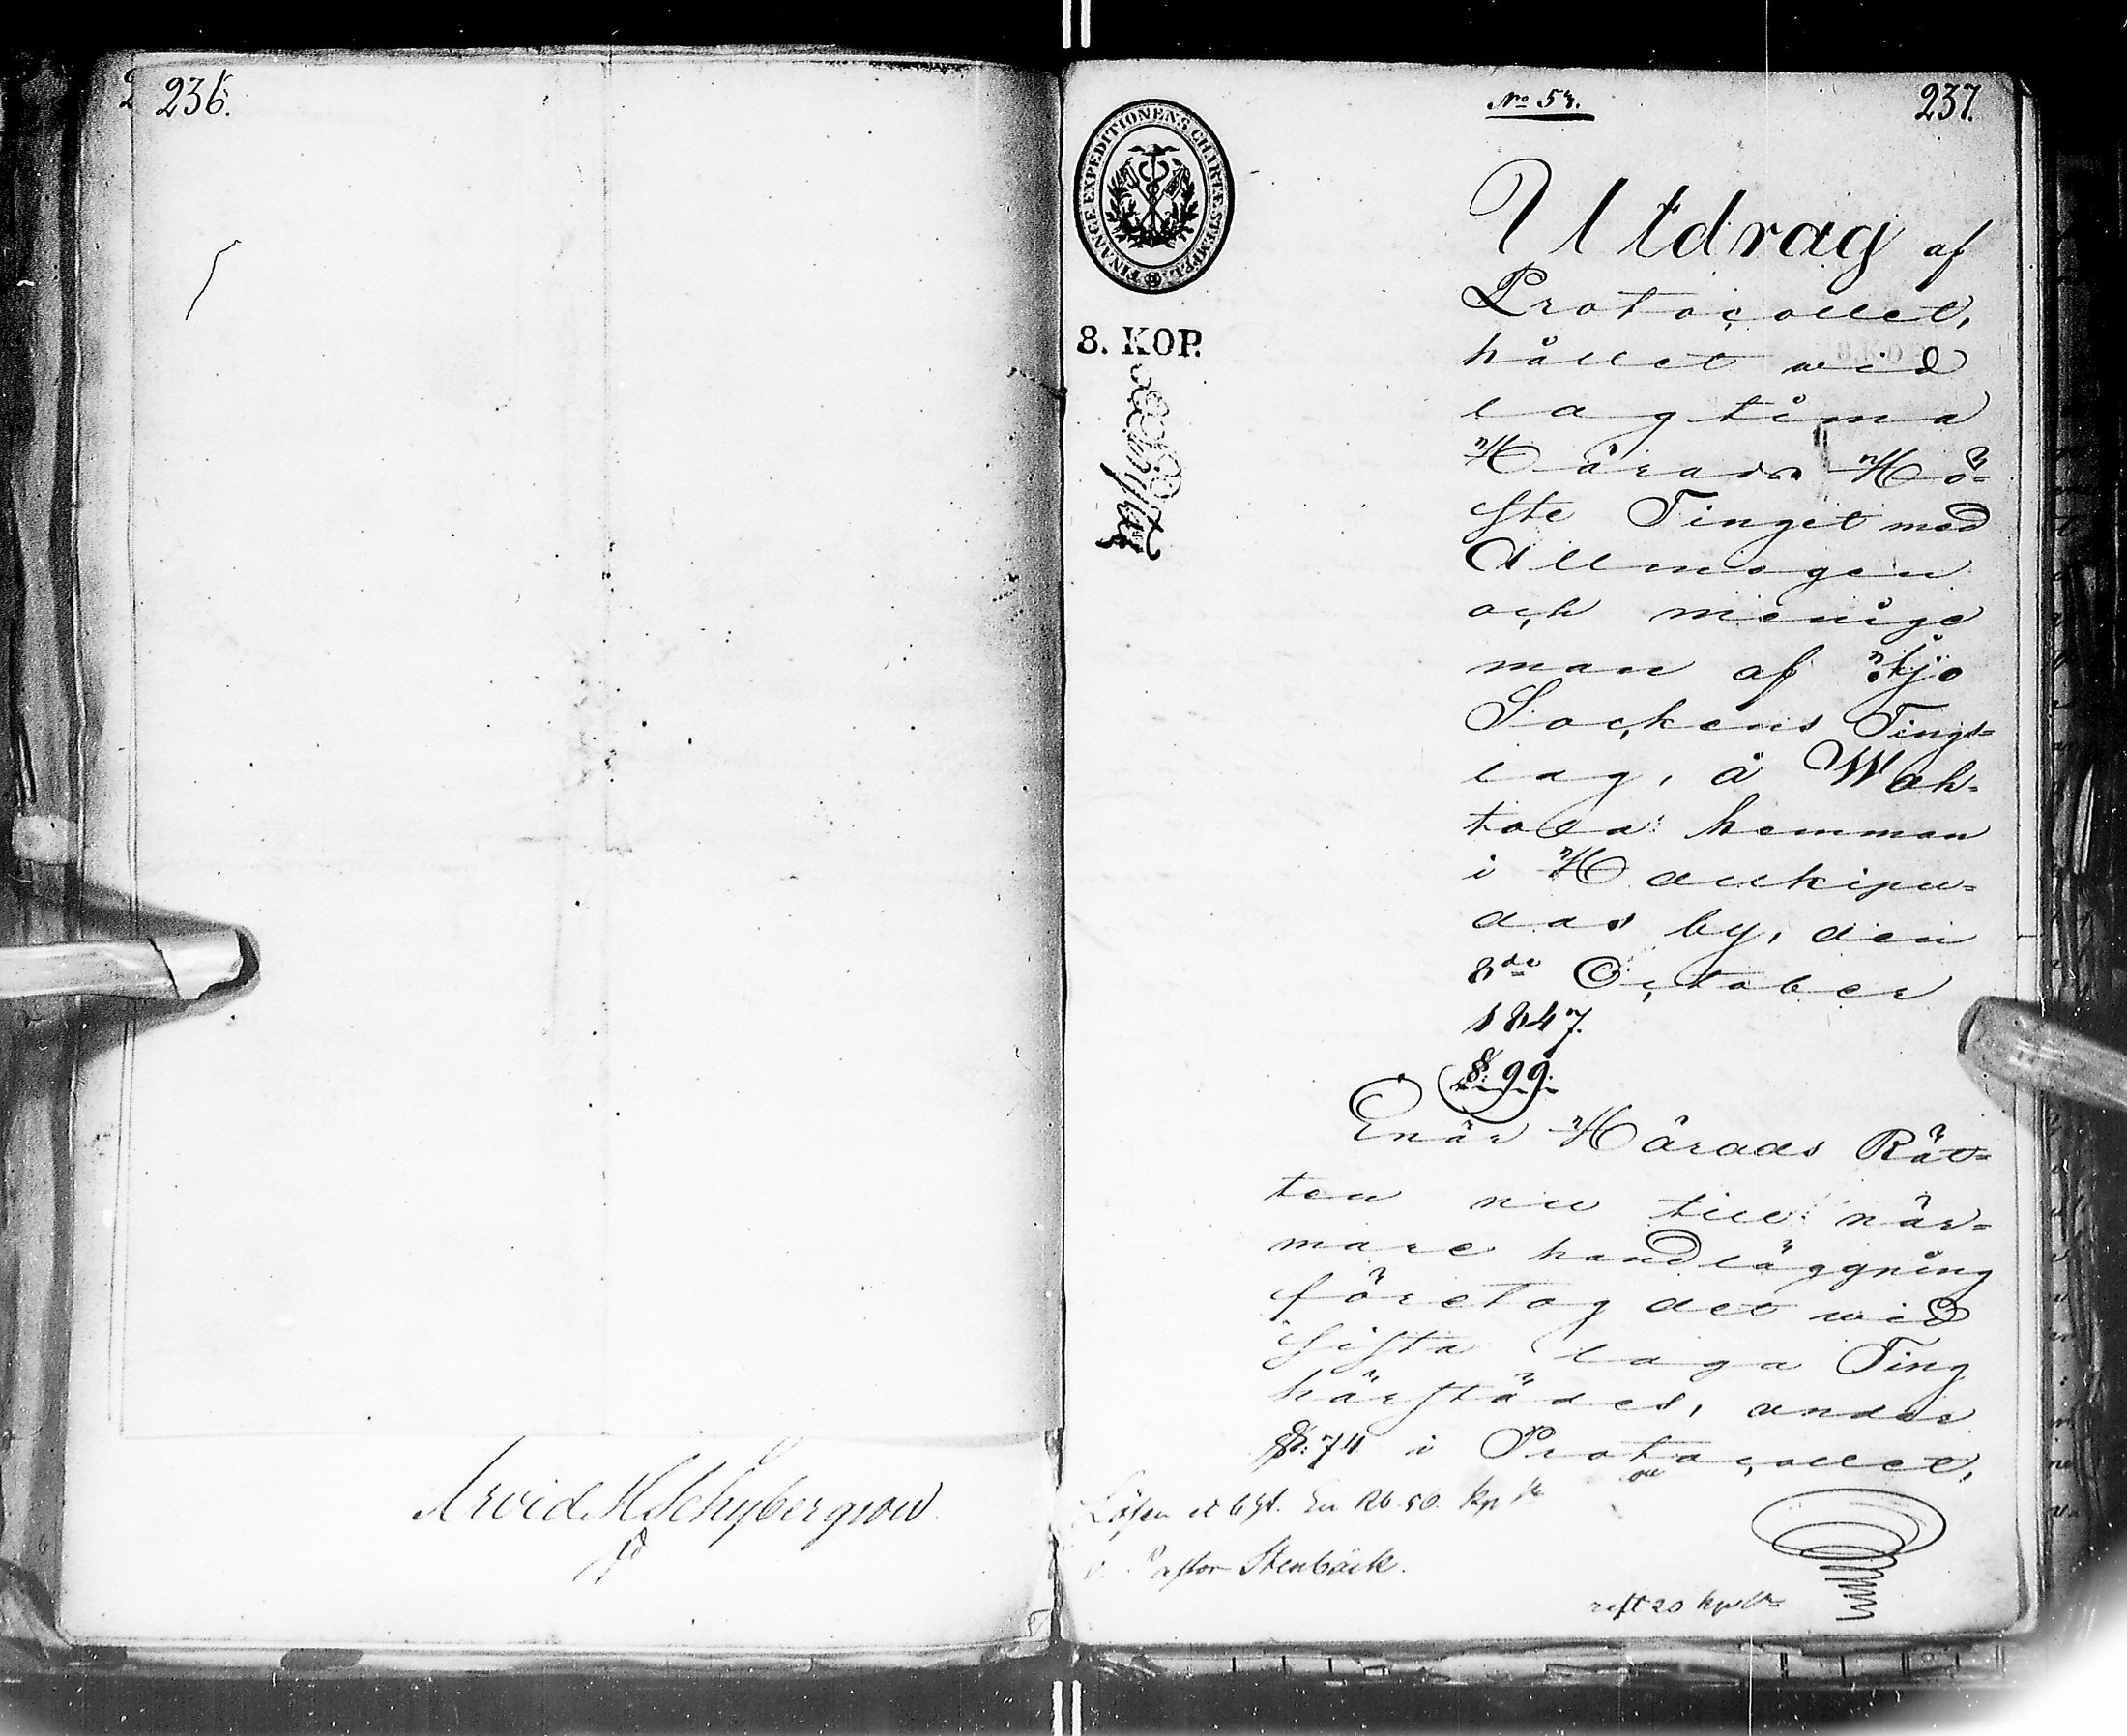 236.
Arvid H Schybergson
No 53.
237.
FINANCE EXPEDITIONENS CHARTÆ STEMPEL
8. KOP.
Utdrag af
Protocollet,
hållet wid
lagtima
Härads Hö=
ste Tinget med
Allmogen
och menige
man af Ijo
Sockens Tings=
lag, å Wah=
tola hemman
i Haukipu=
das by, den
8de October
1847.
§: 99.
Enär Härads Rät=
ten nu till när=
mare handläggning
företog det wid
sista laga Ting
härstädes, under
§: 74 i Protocollet,
Lösen
Pastor Stenbäck.
20 kop